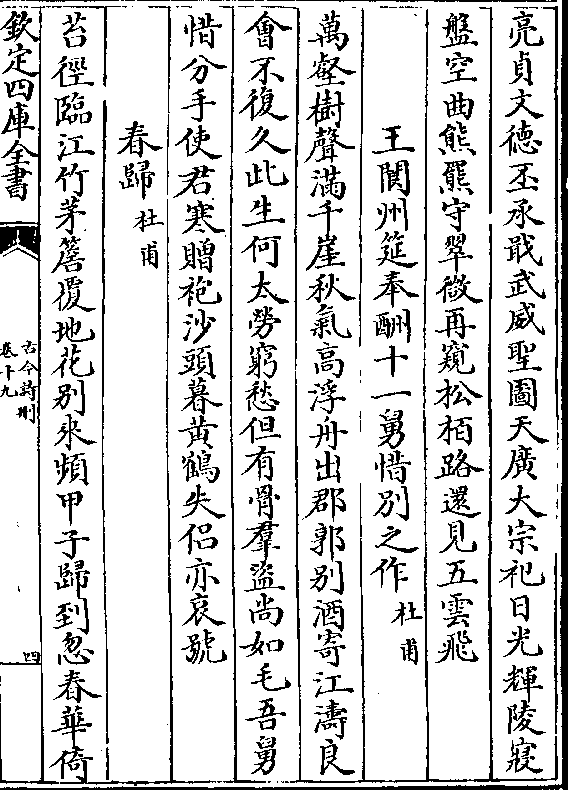 亮貞文德丕承戢武威聖圖天廣大宗祀日光輝陵寢
盤空曲熊羆守翠微再窺松栢路還見五雲飛
王閬州筵奉酬十一舅惜別之作 杜甫
萬壑樹聲滿千崖秋氣高浮舟出郡郭别酒寄江濤良
會不復久此生何太勞窮愁但有骨羣盜尚如毛吾舅
惜分手使君寒贈袍沙頭暮黄鶴失侣亦哀號
春歸 杜甫
苔徑臨江竹茅簷覆地花别來頻甲子歸到忽春華倚
欽定四庫全書
古今詩刪
卷十九
四